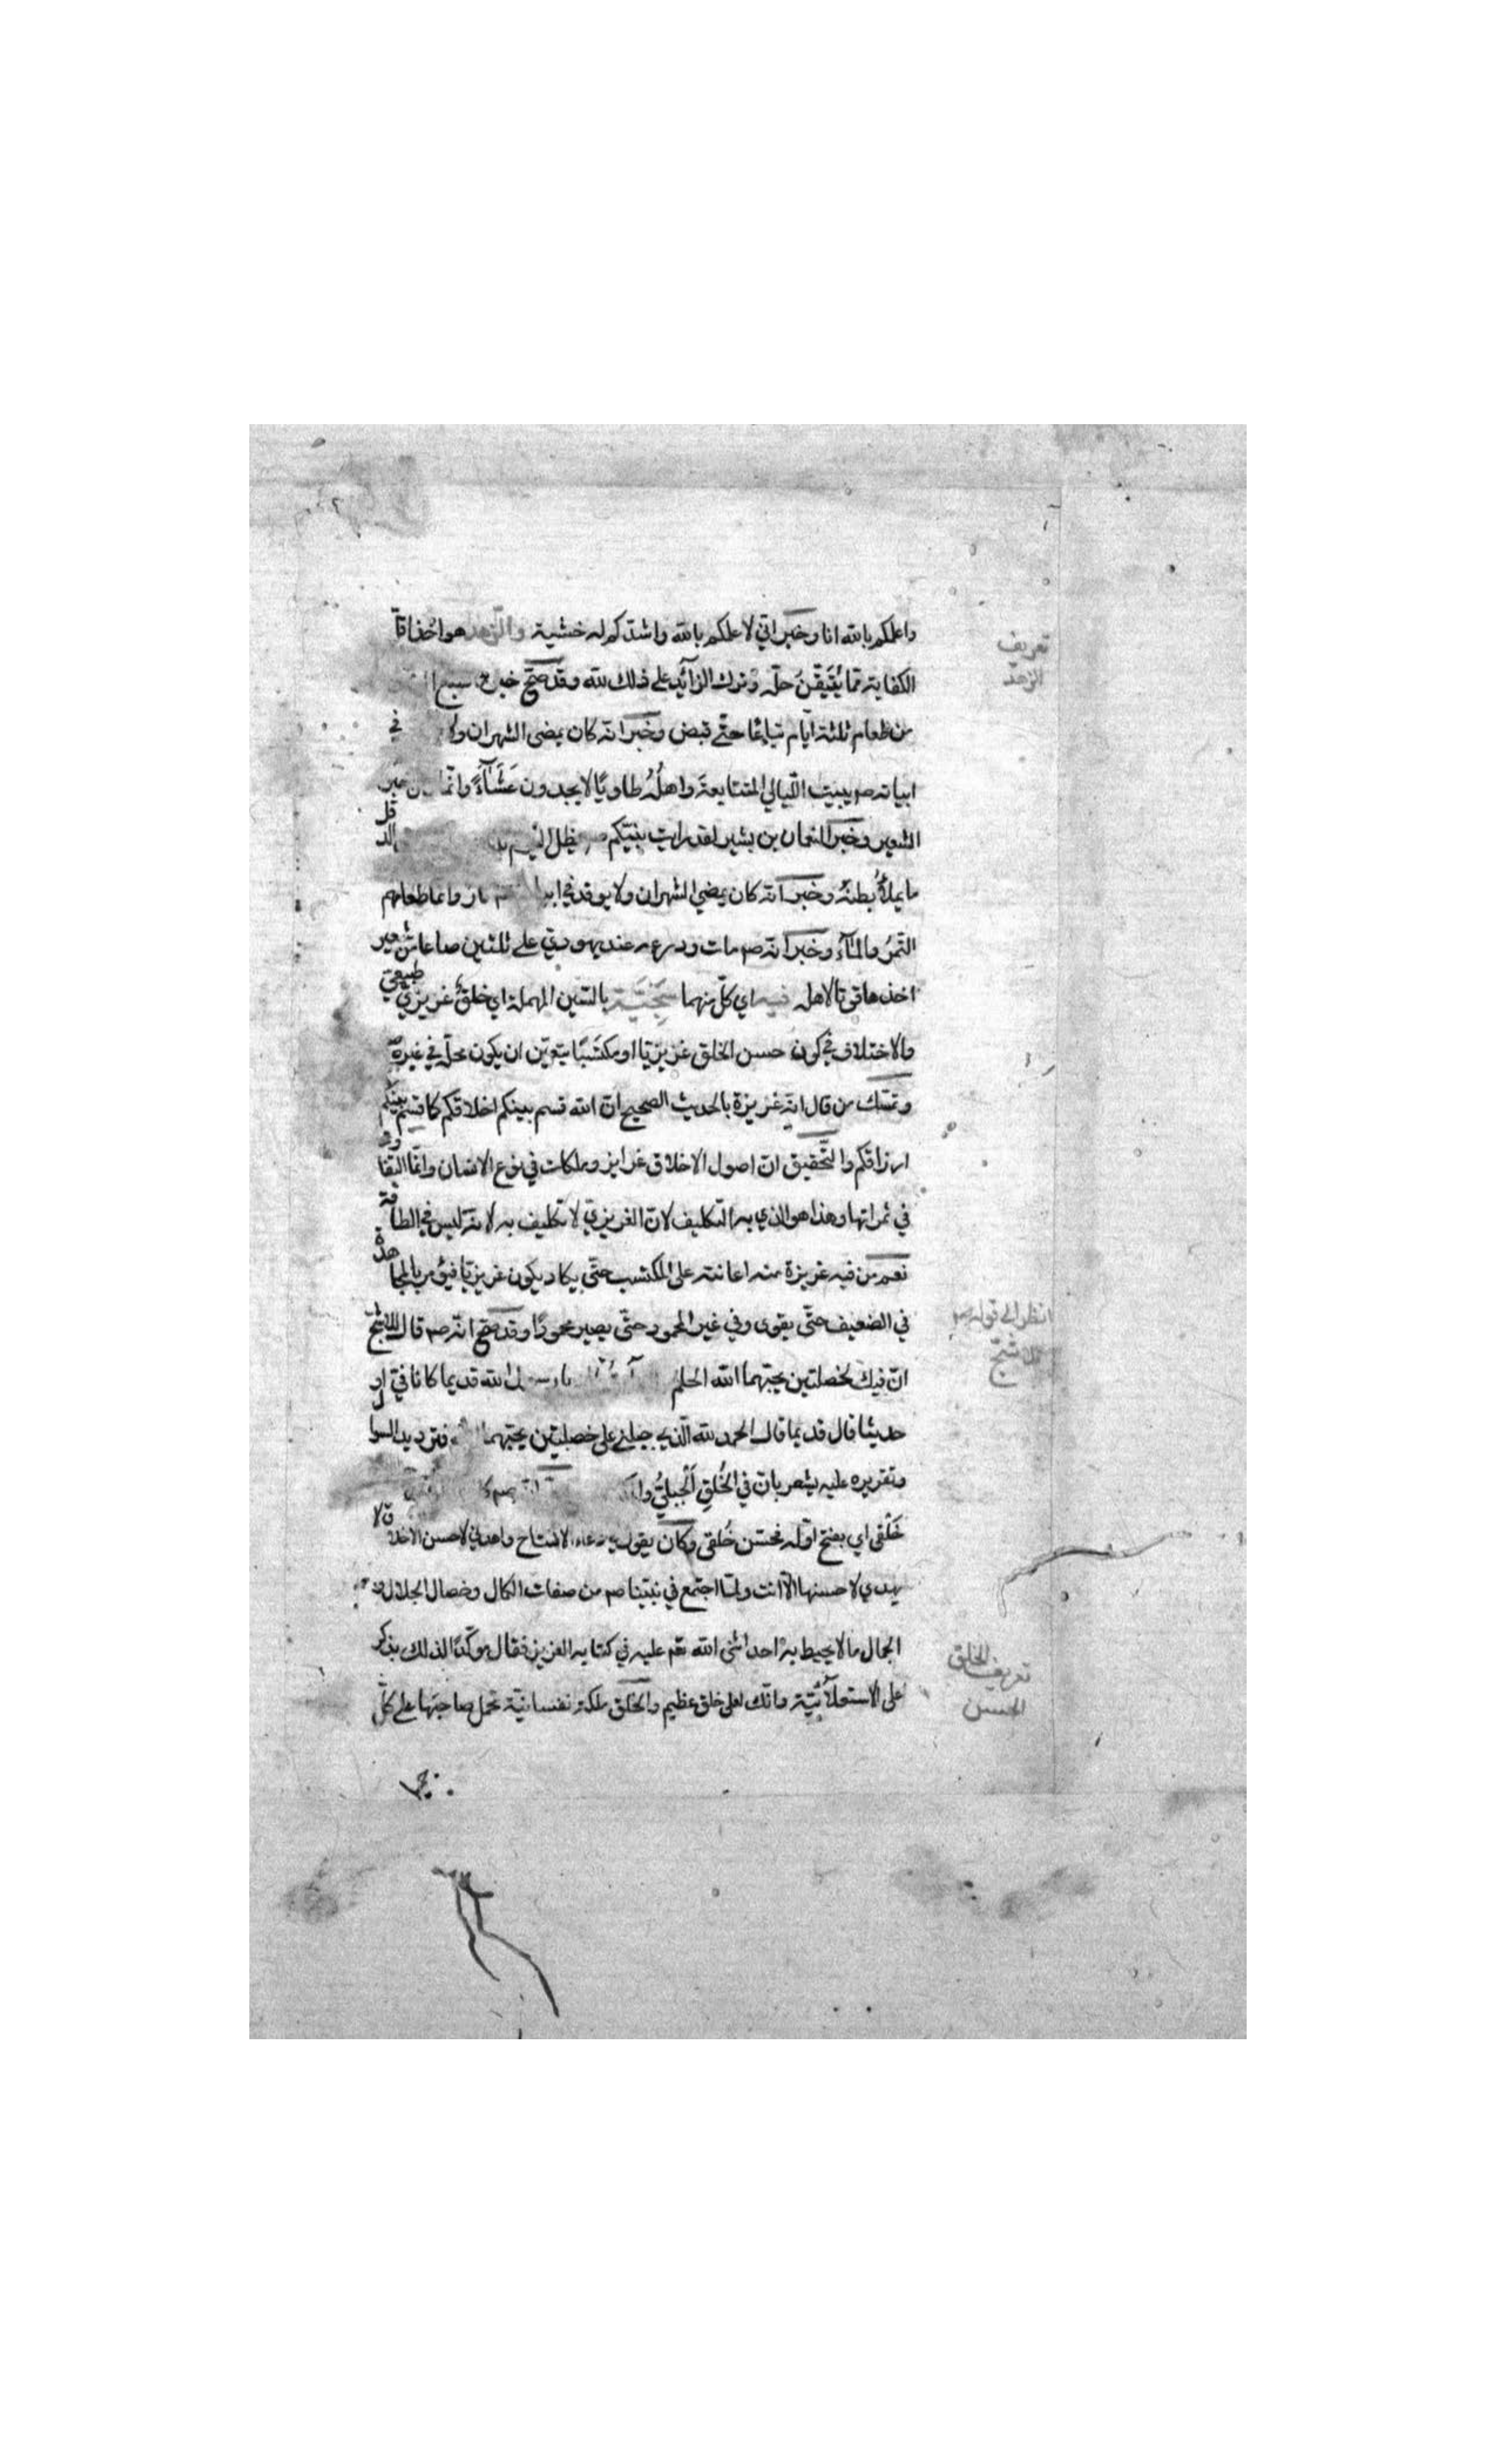 واعلمكم بالله انا وخبر اني لاعلمكم بالله واشدكم له خشية والزهد هو اخذ اقل
تعريف
الزهد
الكفاية مما يُتَيَقّنُ حلّه وترك الزائد على ذلك لله وقد صح خبر ما شبع
من طعام ثلثة ايام تباعًا حتّى قبض وخبر انه كان يمضى الشهران ولا في
ابياته صم يبيت اللّيالي المتتابعة واهلُهُ طاويًا لا يجدون عَشَآءً وانّما خبز
الشعير وخبر النعمان بن بشير لقد رايت نبيّكم صم يظل اليوم الدقل
ما يملأُ بطنَهُ وخبر انه كان يمضي الشهران ولا يوقد في نار وانما طعامهم
التّمرُ والمآءُ وخبر انه صم مات ودرعه عند يهوديّ على ثلثين صاعا من شعير
اخذها قوتا لاهله فيه اي كلّ منهما سَجِيّة بالسّين المهملة اي خلقٌ غريزيّ طبيعيّ
والاختلاف في كون حسن الخلق غريزيّا او مكتسَبًا يتعيّن ان يكون محلّه في غيره
وتمسّك من قال انه غريزة بالحديث الصحيح انّ الله قسم بينكم اخلاقكم كما قسم بينكم
ارزاقكم والتّحقيق انّ اصول الاخلاق غرايز وملكات في نوع الانسان وانّما التفاوت
في ثمراتها وهذا هو الذي به التكليف لانّ الغريزيّ لا تكليف به لانه ليس في الطاقة
نعم من فيه غريزة منه اعانته على المكتسب حتّى يكاد يكون غريزيّا فيؤمر بالمجاهدة
في الضعيف حتّى يقوى وفي غير المحمود حتّى يصير محمودًا وقد صح انّه صم قال للاشج
انظر الى قوله صم
للاشج
انّ فيك لخصلتين يحبّهما الله الحلم يا رسول الله قديما كانا فيّ او
حديثا قال قديما قال الحمد لله الّذي جبلني على خصلتين يحبّهما فترديد السوال
وتقريره عليه يشعر بان في الخُلقِ الجبليُّ
خَلْقى اي بفتح اوّله فحسّن خُلقى وكان يقول في دعاء الافتتاح واهدني لاحسن الاخلاق لا
يهدي لاحسنها الاّ انت ولمّا اجتمع في نبيّنا صم من صفات الكمال وخصال الجلال و
الجمال ما لا يحيط به احد اثنى الله تعم عليه في كتابه العزيز فقال موكّدًا لذلك بذكر
على الاستعلآئيّة وانّك لعلى خلق عظيم والخلق ملكة نفسانيّة تحمل صاحبَها على كلّ
تعريف الخلق
الحسن